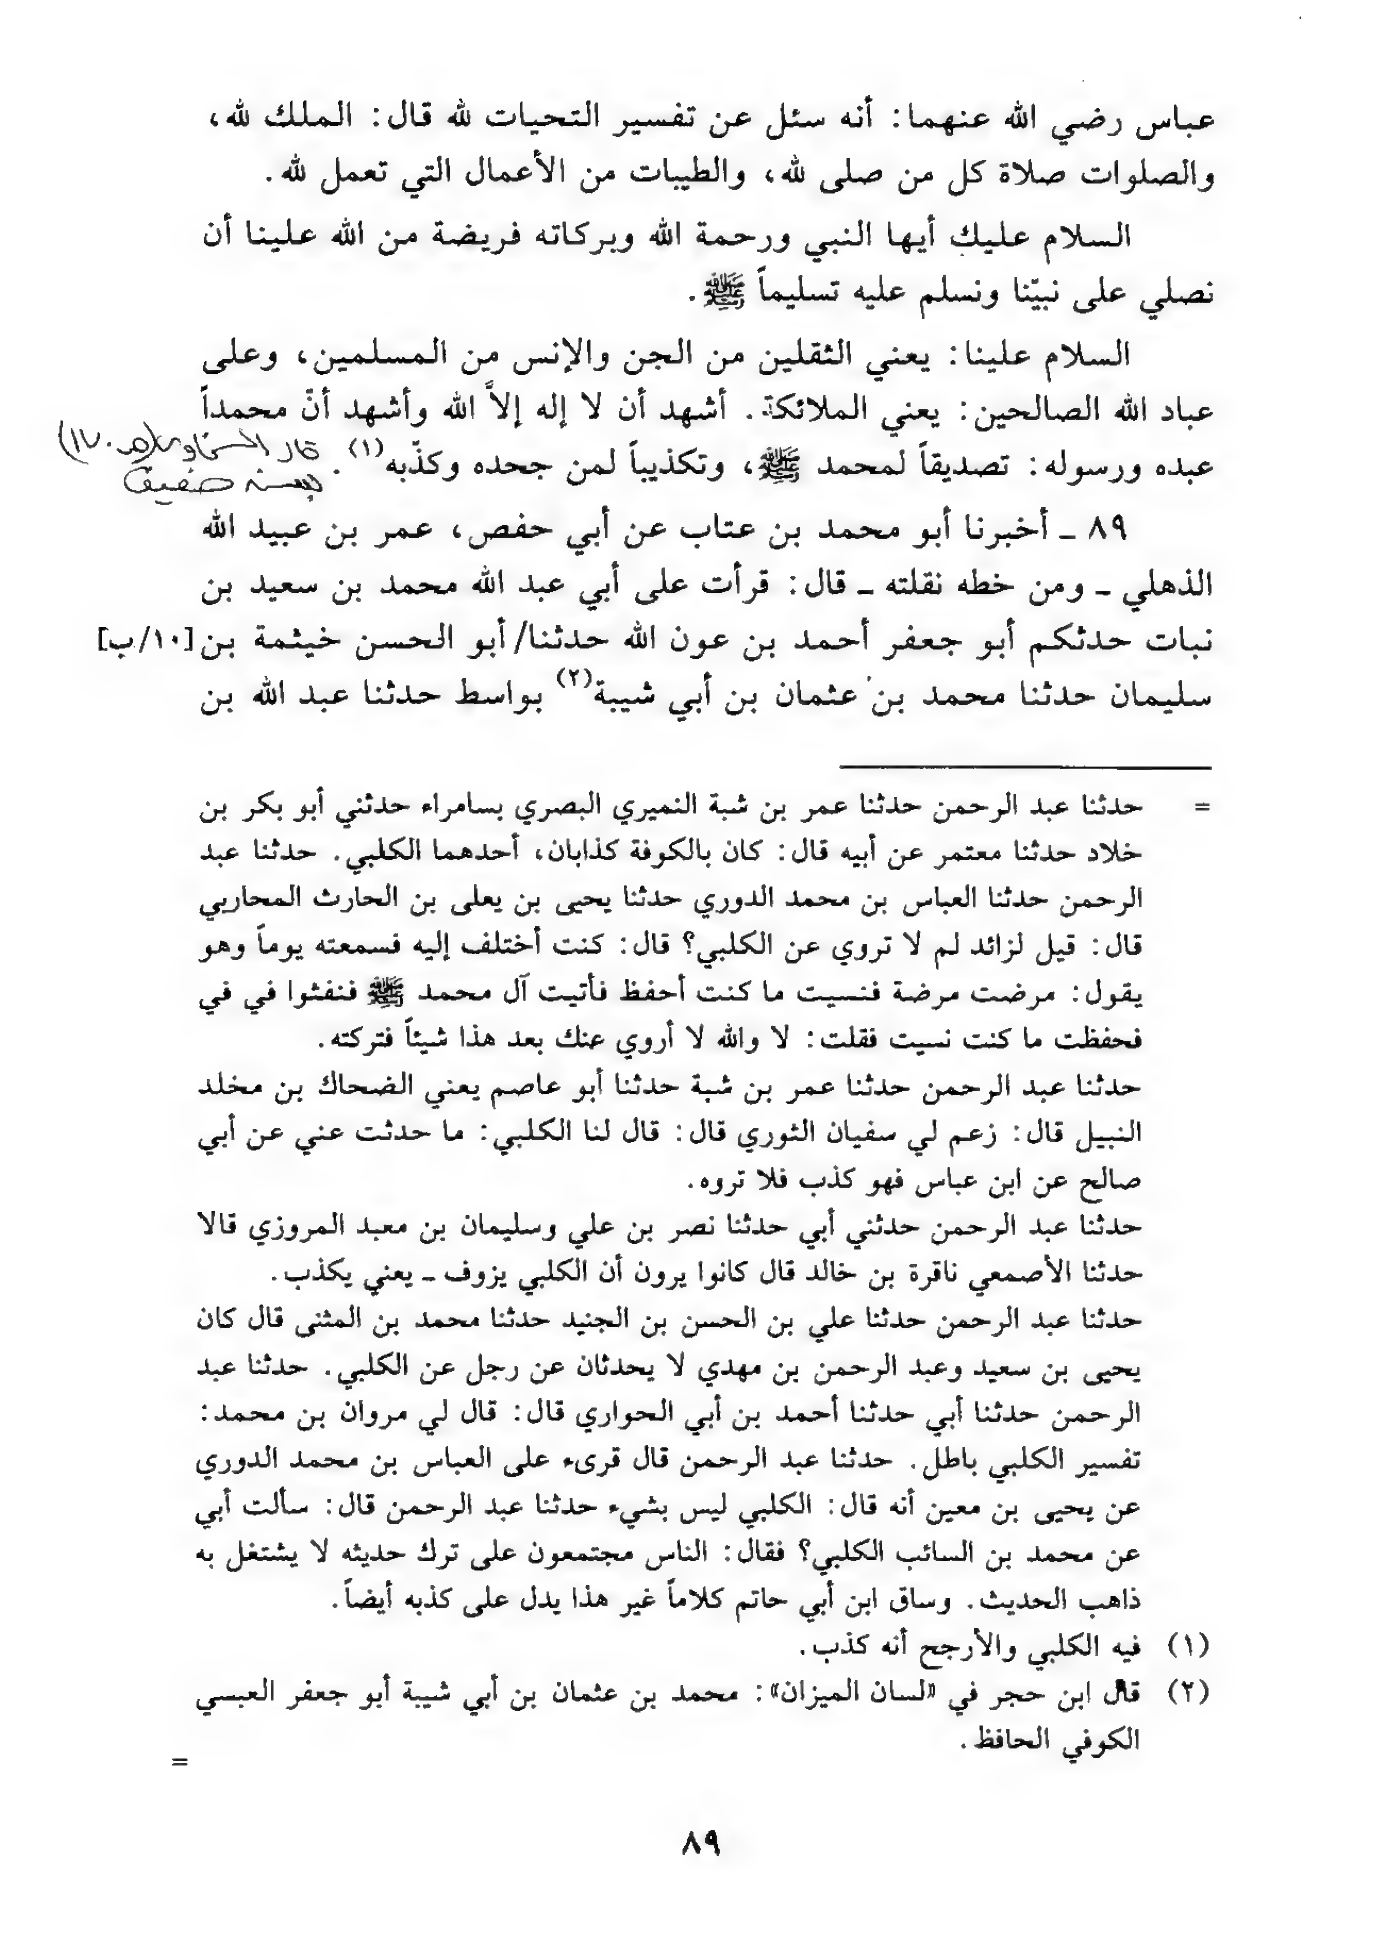 عباس رضي الله عنهما: أنه سئل عن تفسير التحيات لله قال: الملك لله،
والصلوات صلاة كل من صلى لله، والطيبات من الأعمال التي تعمل لله.
السلام عليك أيها النبي ورحمة الله وبركاته فريضة من الله علينا أن
نصلي على نبيّنا ونسلم عليه تسليماً ﷺ.
السلام علينا: يعني الثقلين من الجن والإنس من المسلمين، وعلى
عباد الله الصالحين: يعني الملائكة. أشهد أن لا إله إلاَّ الله وأشهد أنّ محمداً
عبده ورسوله: تصديقاً لمحمد ﷺ، وتكذيباً لمن جحده وكذّبه(١).
قال السخاوي (ص١٧٠)
بسند ضعيف
٨٩ ـ أخبرنا أبو محمد بن عتاب عن أبي حفص، عمر بن عبيد الله
الذهلي ـ ومن خطه نقلته ـ قال: قرأت على أبي عبد الله محمد بن سعيد بن
نبات حدثكم أبو جعفر أحمد بن عون الله حدثنا/ أبو الحسن خيثمة بن [١٠/ب]
سليمان حدثنا محمد بن عثمان بن أبي شيبة(٢) بواسط حدثنا عبد الله بن
= حدثنا عبد الرحمن حدثنا عمر بن شبة النميري البصري بسامراء حدثني أبو بكر بن
خلاد حدثنا معتمر عن أبيه قال: كان بالكوفة كذابان، أحدهما الكلبي. حدثنا عبد
الرحمن حدثنا العباس بن محمد الدوري حدثنا يحيى بن يعلى بن الحارث المحاربي
قال: قيل لزائد لم لا تروي عن الكلبي؟ قال: كنت أختلف إليه فسمعته يوماً وهو
يقول: مرضت مرضة فنسيت ما كنت أحفظ فأتيت آل محمد ﷺ فنفثوا في في
فحفظت ما كنت نسيت فقلت: لا والله لا أروي عنك بعد هذا شيئاً فتركته.
حدثنا عبد الرحمن حدثنا عمر بن شبة حدثنا أبو عاصم يعني الضحاك بن مخلد
النبيل قال: زعم لي سفيان الثوري قال: قال لنا الكلبي: ما حدثت عني عن أبي
صالح عن ابن عباس فهو كذب فلا تروه.
حدثنا عبد الرحمن حدثني أبي حدثنا نصر بن علي وسليمان بن معبد المروزي قالا
حدثنا الأصمعي ناقرة بن خالد قال كانوا يرون أن الكلبي يزوف ـ يعني يكذب.
حدثنا عبد الرحمن حدثنا علي بن الحسن بن الجنيد حدثنا محمد بن المثنى قال كان
يحيى بن سعيد وعبد الرحمن بن مهدي لا يحدثان عن رجل عن الكلبي. حدثنا عبد
الرحمن حدثنا أبي حدثنا أحمد بن أبي الحواري قال: قال لي مروان بن محمد:
تفسير الكلبي باطل. حدثنا عبد الرحمن قال قرىء على العباس بن محمد الدوري
عن يحيى بن معين أنه قال: الكلبي ليس بشيء حدثنا عبد الرحمن قال: سألت أبي
عن محمد بن السائب الكلبي؟ فقال: الناس مجتمعون على ترك حديثه لا يشتغل به
ذاهب الحديث. وساق ابن أبي حاتم كلاماً غير هذا يدل على كذبه أيضاً.
(١) فيه الكلبي والأرجح أنه كذب.
(٢) قال ابن حجر في «لسان الميزان»: محمد بن عثمان بن أبي شيبة أبو جعفر العبسي
الكوفي الحافظ. =
٨٩